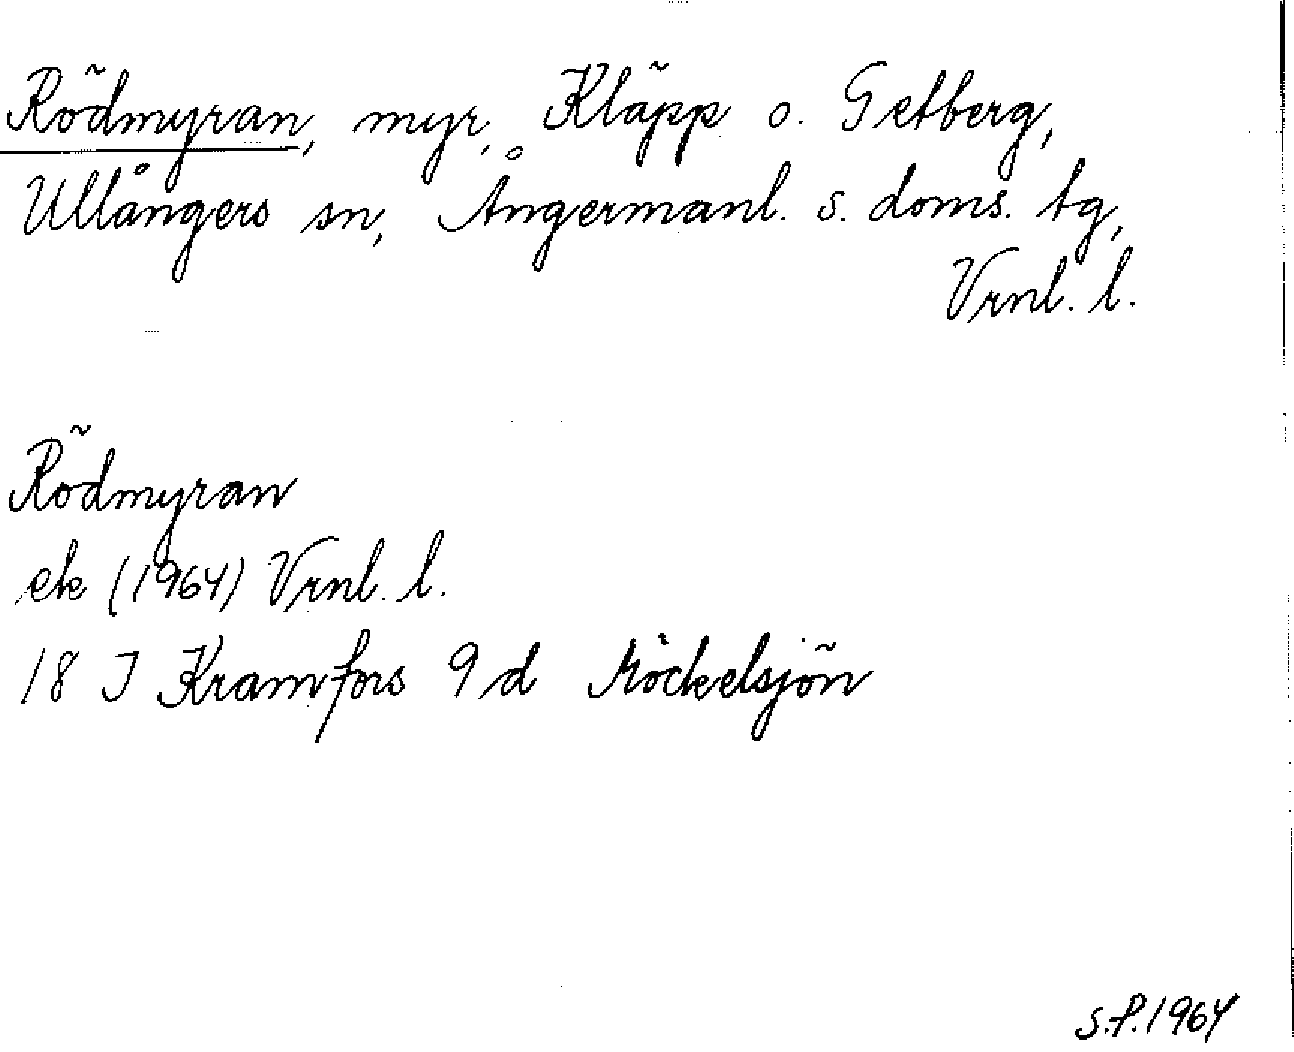 Rödmyran, myr, Kläpp o. Getberg,
Ullångers sn, Ångermanl. s. doms. tg,
Vrnl. l.
Rödmyran
ek (1964) Vrnl. l.
18 I Kramfors 9 d Möckelsjön
S.P.1964